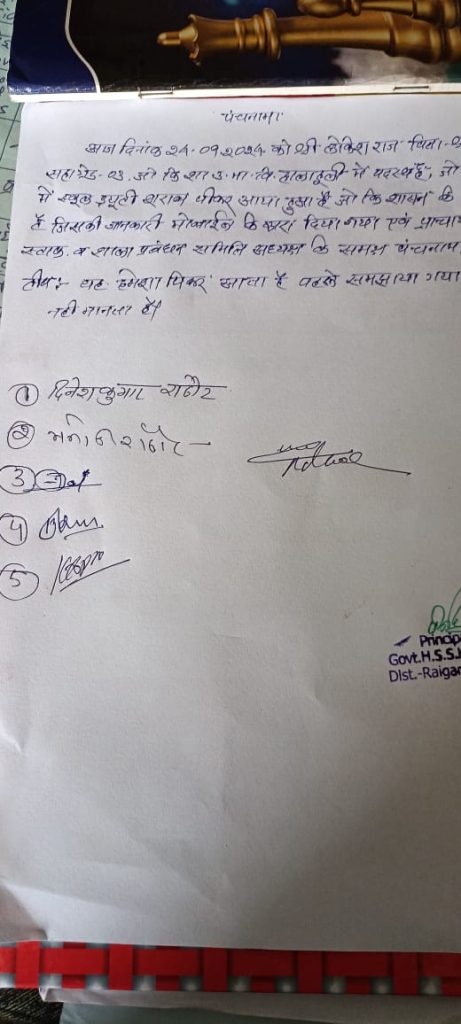 पंचनामा
आज दिनांक 24.09.2024 को श्री लोकेश राज पिता-
सहा ग्रेड-03 जो कि शा उ.मा.वि. में पदस्थ है, जो
में स्कूल ड्यूटी शराब पीकर आया हुआ है जो कि शासन के
है जिसकी जानकारी मोबाईल के द्वारा दिया गया एवं प्राचा
स्टाफ व शाला प्रबंधन समिति अध्यक्ष के समक्ष पंचनाम
टीप:- यह हमेशा पिकर आता है पहले समझाया गया
नही मानता है।
① दिनेश कुमार राठौर
②
③
④
⑤
Princip
Govt.H.S.S.
Dist.-Raigar